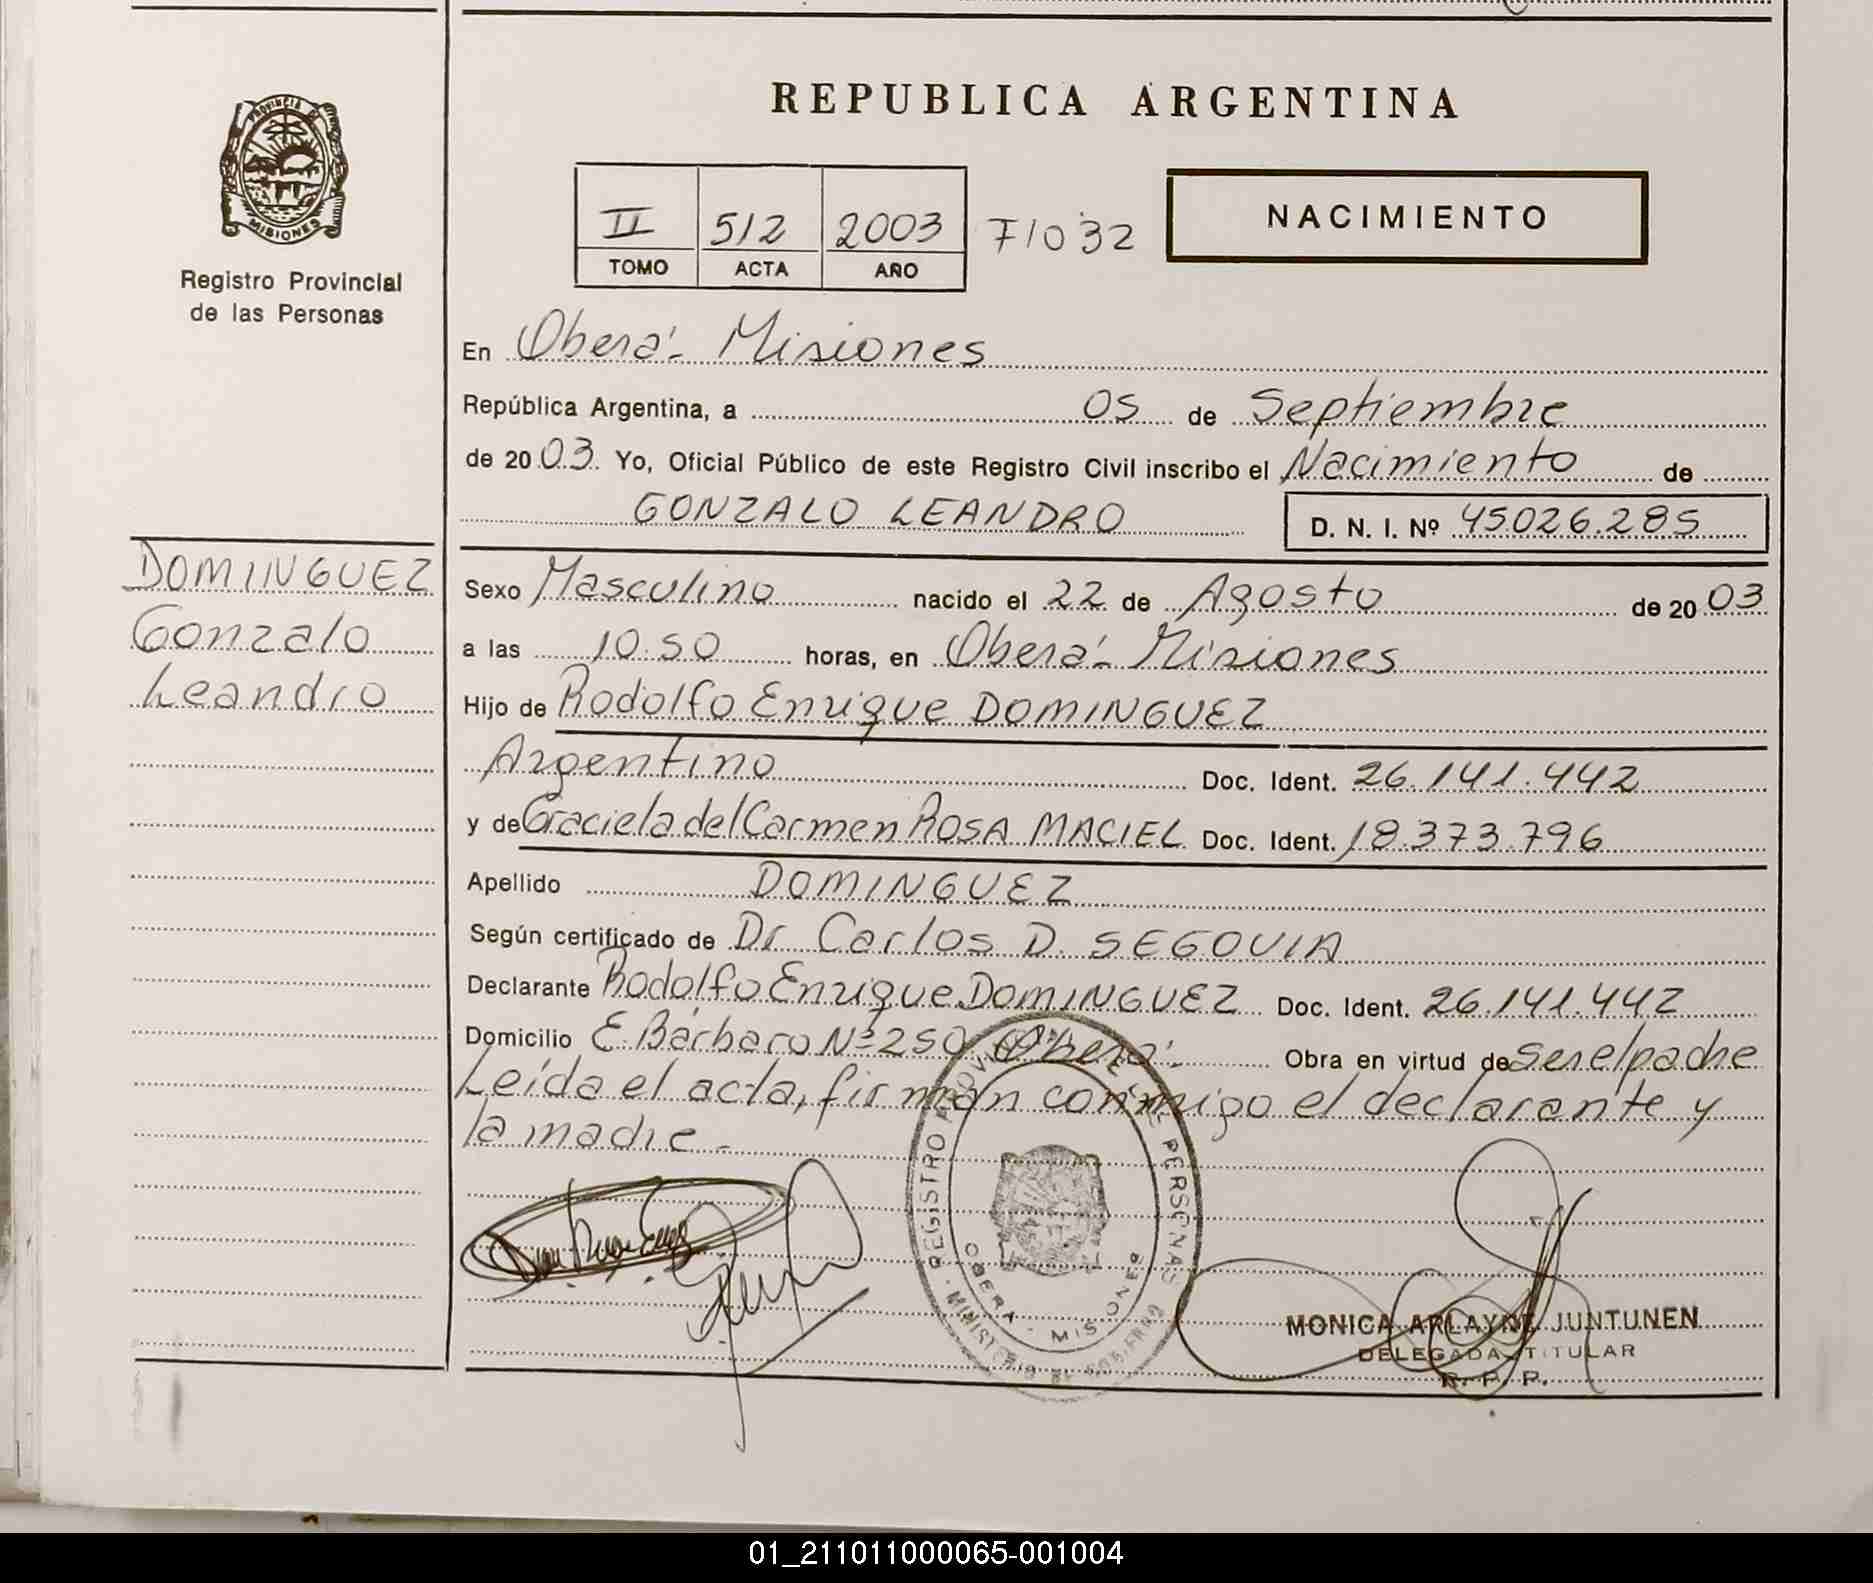 REPUBLICA ARGENTINA
PROVINCIA
MISIONES
Registro Provincial
de las Personas
II 512 2003 F/032
TOMO ACTA AÑO
NACIMIENTO
En Oberá - Misiones
República Argentina, a 05 de Septiembre
de 2003. Yo, Oficial Público de este Registro Civil inscribo el Nacimiento de
GONZALO LEANDRO D. N. I. Nº 45.026.285
DOMINGUEZ
Gonzalo
Leandro
Sexo Masculino nacido el 22 de Agosto de 2003
a las 10.50 horas, en Oberá - Misiones
Hijo de Rodolfo Enrique DOMINGUEZ
Argentino Doc. Ident. 26.141.442
y de Graciela del Carmen ROSA MACIEL Doc. Ident. 18.373.796
Apellido DOMINGUEZ
Según certificado de Dr Carlos D. SEGOVIA
Declarante Rodolfo Enrique DOMINGUEZ Doc. Ident. 26.141.442
Domicilio E. Bárbaro Nº 250 Oberá. Obra en virtud de Ser el padre
Leída el acta, firman conmigo el declarante y
la madre.-
REGISTRO PROVINCIAL DE LAS PERSONAS
OBERA - MISIONES
MINISTERIO DE GOBIERNO
MONICA ARLAYNE JUNTUNEN
DELEGADA TITULAR
R. P. P.
01_211011000065-001004